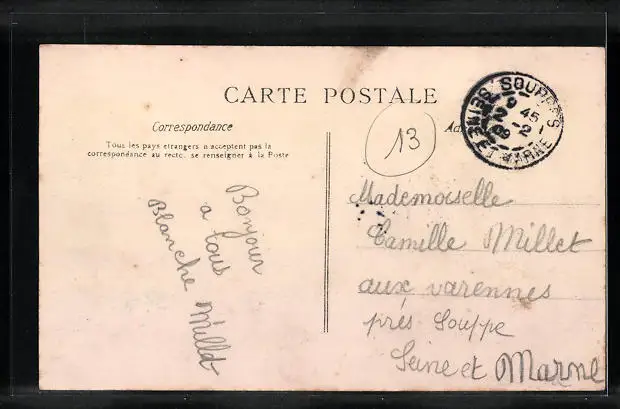 CARTE POSTALE
Correspondance
Tous les pays étrangers n'acceptent pas la
correspondance au recto. se renseigner à la Poste
13
SOUPPES
9 45
2 -2
09
SEINE ET MARNE
Bonjour
a tous
Blanche Millet
Mademoiselle
Camille Millet
aux varennes
près Souppe
Seine et Marne